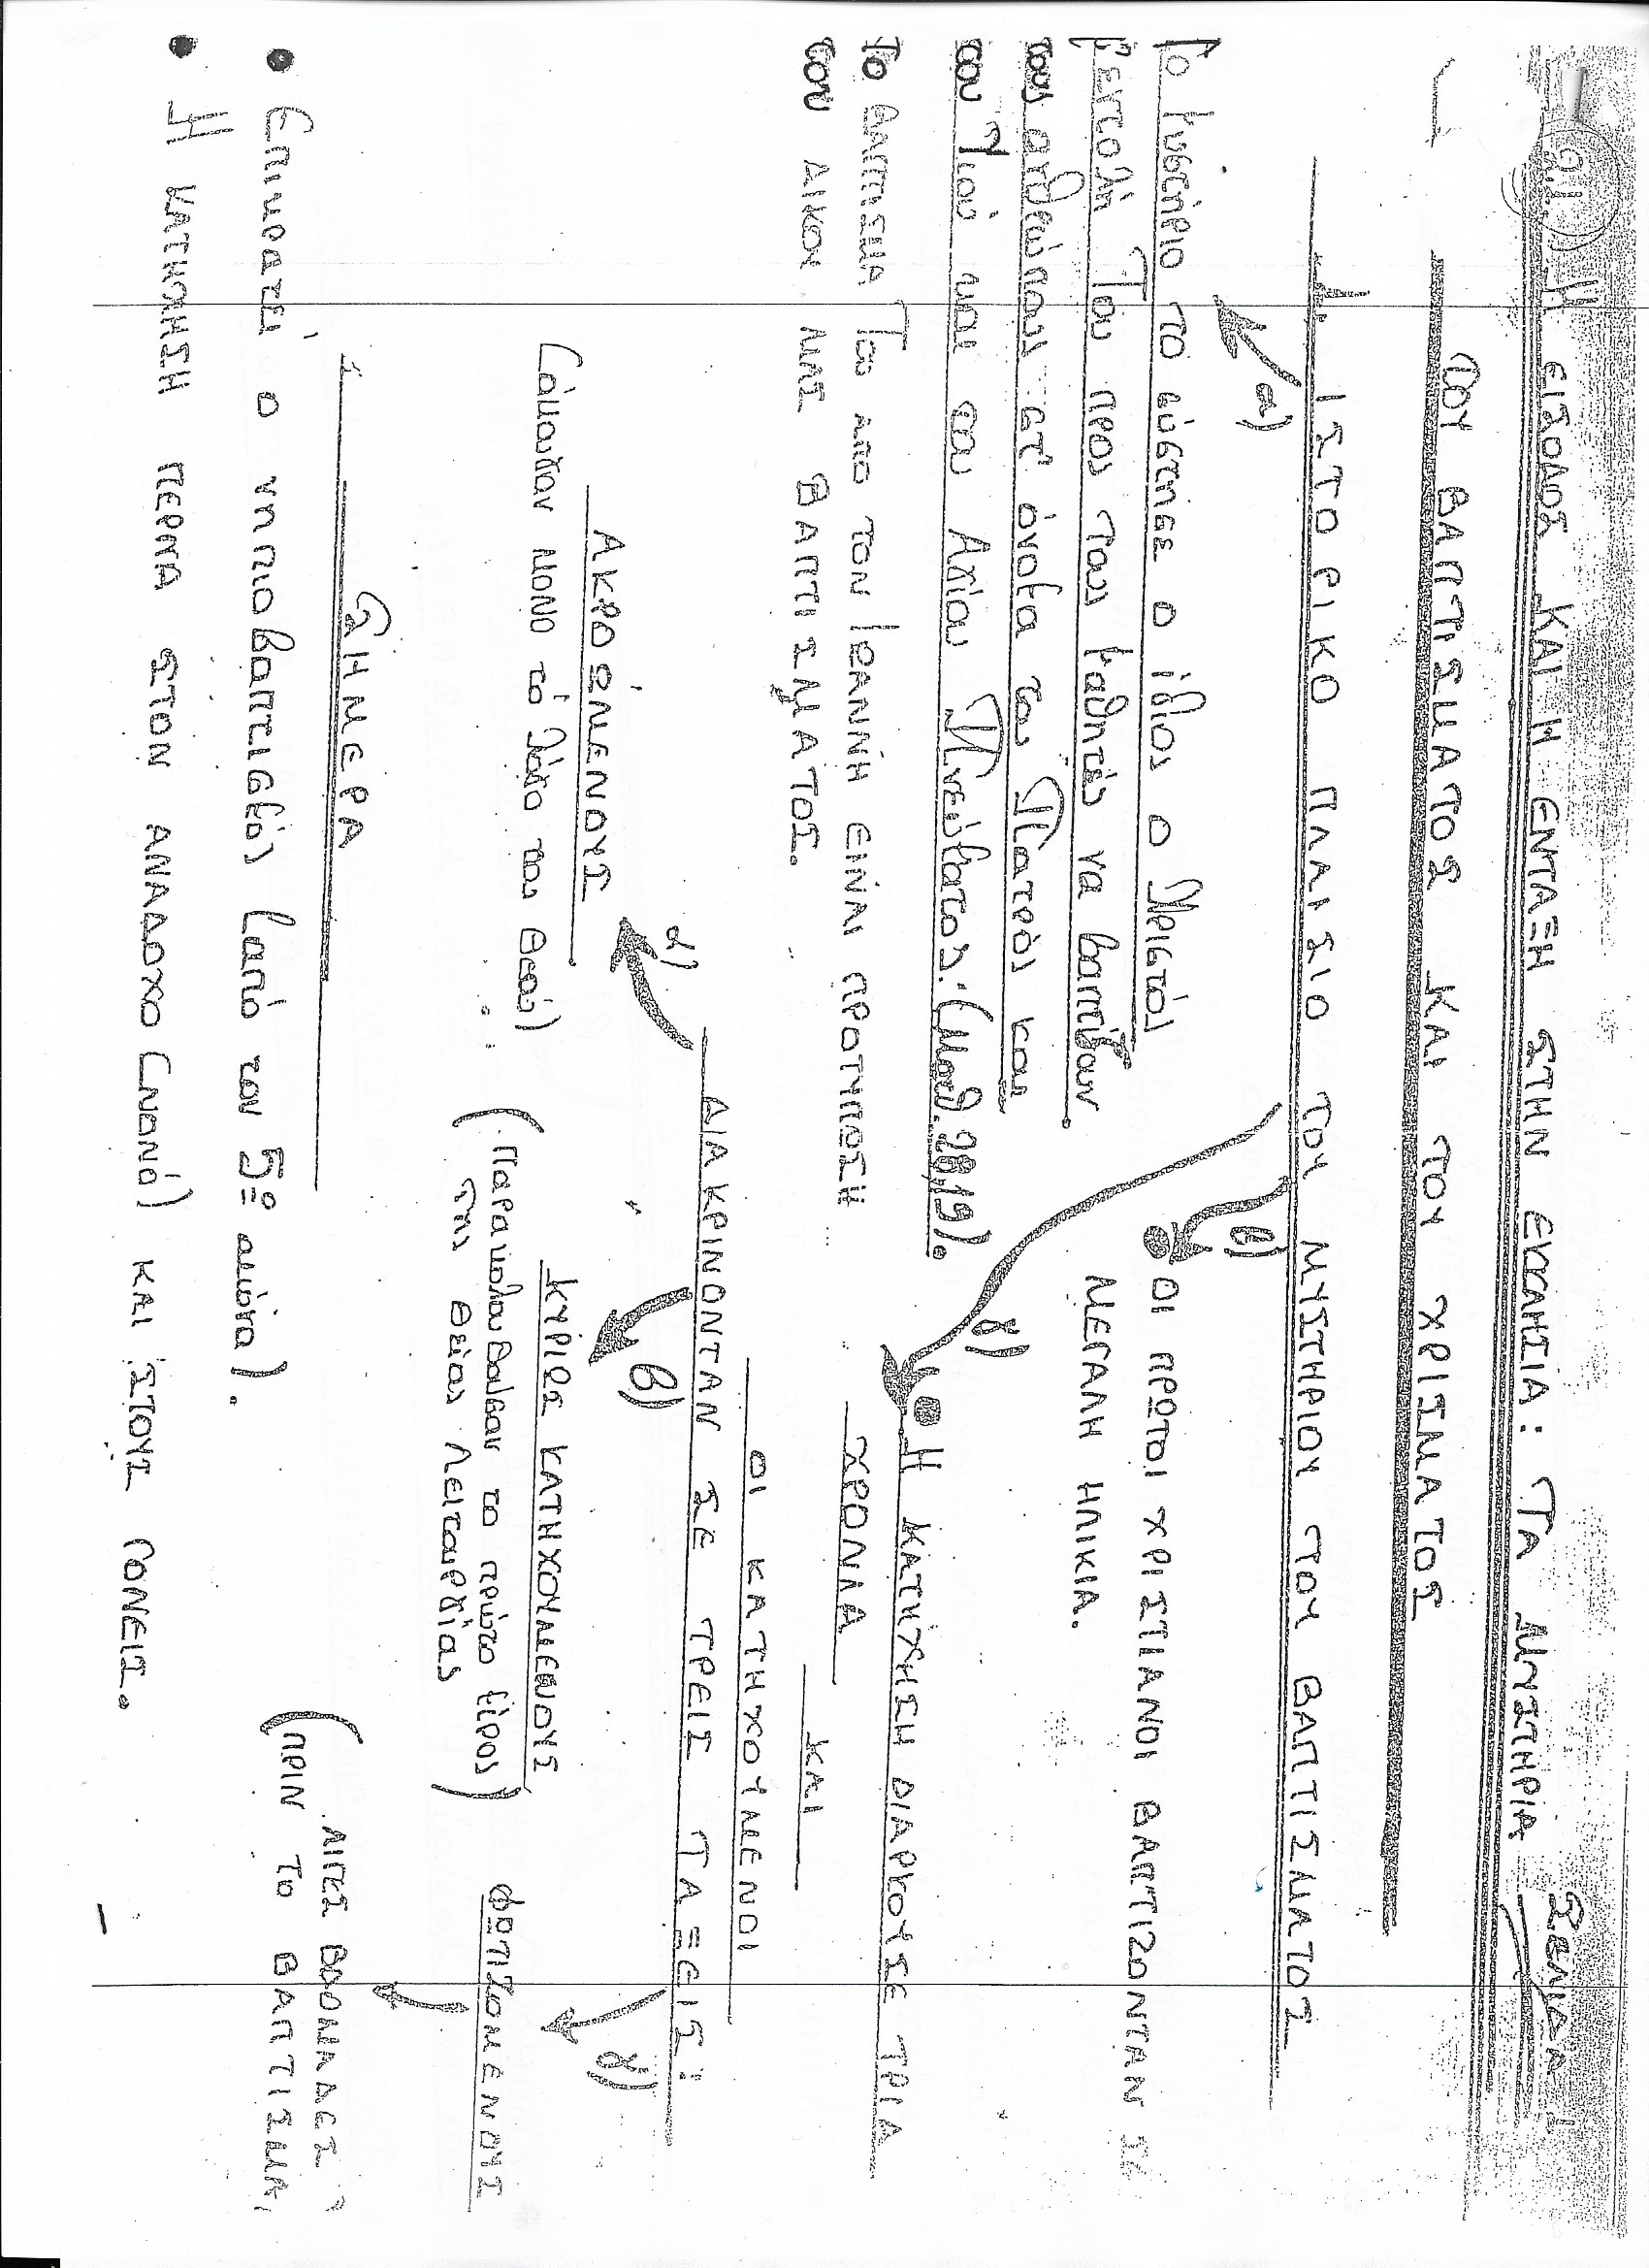 Η ΕΙΣΟΔΟΣ ΚΑΙ Η ΕΝΤΑΞΗ ΣΤΗΝ ΕΚΚΛΗΣΙΑ: ΤΑ ΜΥΣΤΗΡΙΑ
ΤΟΥ ΒΑΠΤΙΣΜΑΤΟΣ ΚΑΙ ΤΟΥ ΧΡΙΣΜΑΤΟΣ
ΙΣΤΟΡΙΚΟ ΠΛΑΙΣΙΟ ΤΟΥ ΜΥΣΤΗΡΙΟΥ ΤΟΥ ΒΑΠΤΙΣΜΑΤΟΣ
α)
Το μυστήριο το σύστησε ο ίδιος ο Χριστός
(εντολή Του προς τους μαθητές να βαπτίζουν
τους ανθρώπους στ' όνομα του Πατρός και
του Υιού και του Αγίου Πνεύματος: (Ματθ. 28,19).
ΤΟ ΒΑΠΤΙΣΜΑ Του ΑΠΟ ΤΟΝ ΙΩΑΝΝΗ ΕΙΝΑΙ ΠΡΟΤΥΠΩΣΗ
του ΔΙΚΟΥ ΜΑΣ ΒΑΠΤΙΣΜΑΤΟΣ.
β)
• ΟΙ ΠΡΩΤΟΙ ΧΡΙΣΤΙΑΝΟΙ ΒΑΠΤΙΖΟΝΤΑΝ ΣΕ
ΜΕΓΑΛΗ ΗΛΙΚΙΑ.
γ)
• Η ΚΑΤΗΧΗΣΗ ΔΙΑΡΚΟΥΣΕ ΤΡΙΑ
ΧΡΟΝΙΑ
ΚΑΙ
ΟΙ ΚΑΤΗΧΟΥΜΕΝΟΙ
ΔΙΑΚΡΙΝΟΝΤΑΝ ΣΕ ΤΡΕΙΣ ΤΑΞΕΙΣ:
α)
ΑΚΡΟΩΜΕΝΟΥΣ
(άκουγαν μονο τό λόγο του Θεού)
β)
ΚΥΡΙΩΣ ΚΑΤΗΧΟΥΜΕΝΟΥΣ
(παρακολουθούσαν το πρώτο μέρος
της Θείας Λειτουργίας)
γ)
ΦΩΤΙΖΟΜΕΝΟΥΣ
ΒΔΟΜΑΔΕΣ
(ΠΡΙΝ ΤΟ ΒΑΠΤΙΣΜΑ
ΣΗΜΕΡΑ
• Επικρατεί ο νηπιοβαπτισμός (από τον 5ο αιώνα).
• Η ΚΑΤΗΧΗΣΗ ΠΕΡΝΑ ΣΤΟΝ ΑΝΑΔΟΧΟ (ΝΟΝΟ) ΚΑΙ ΣΤΟΥΣ ΓΟΝΕΙΣ.